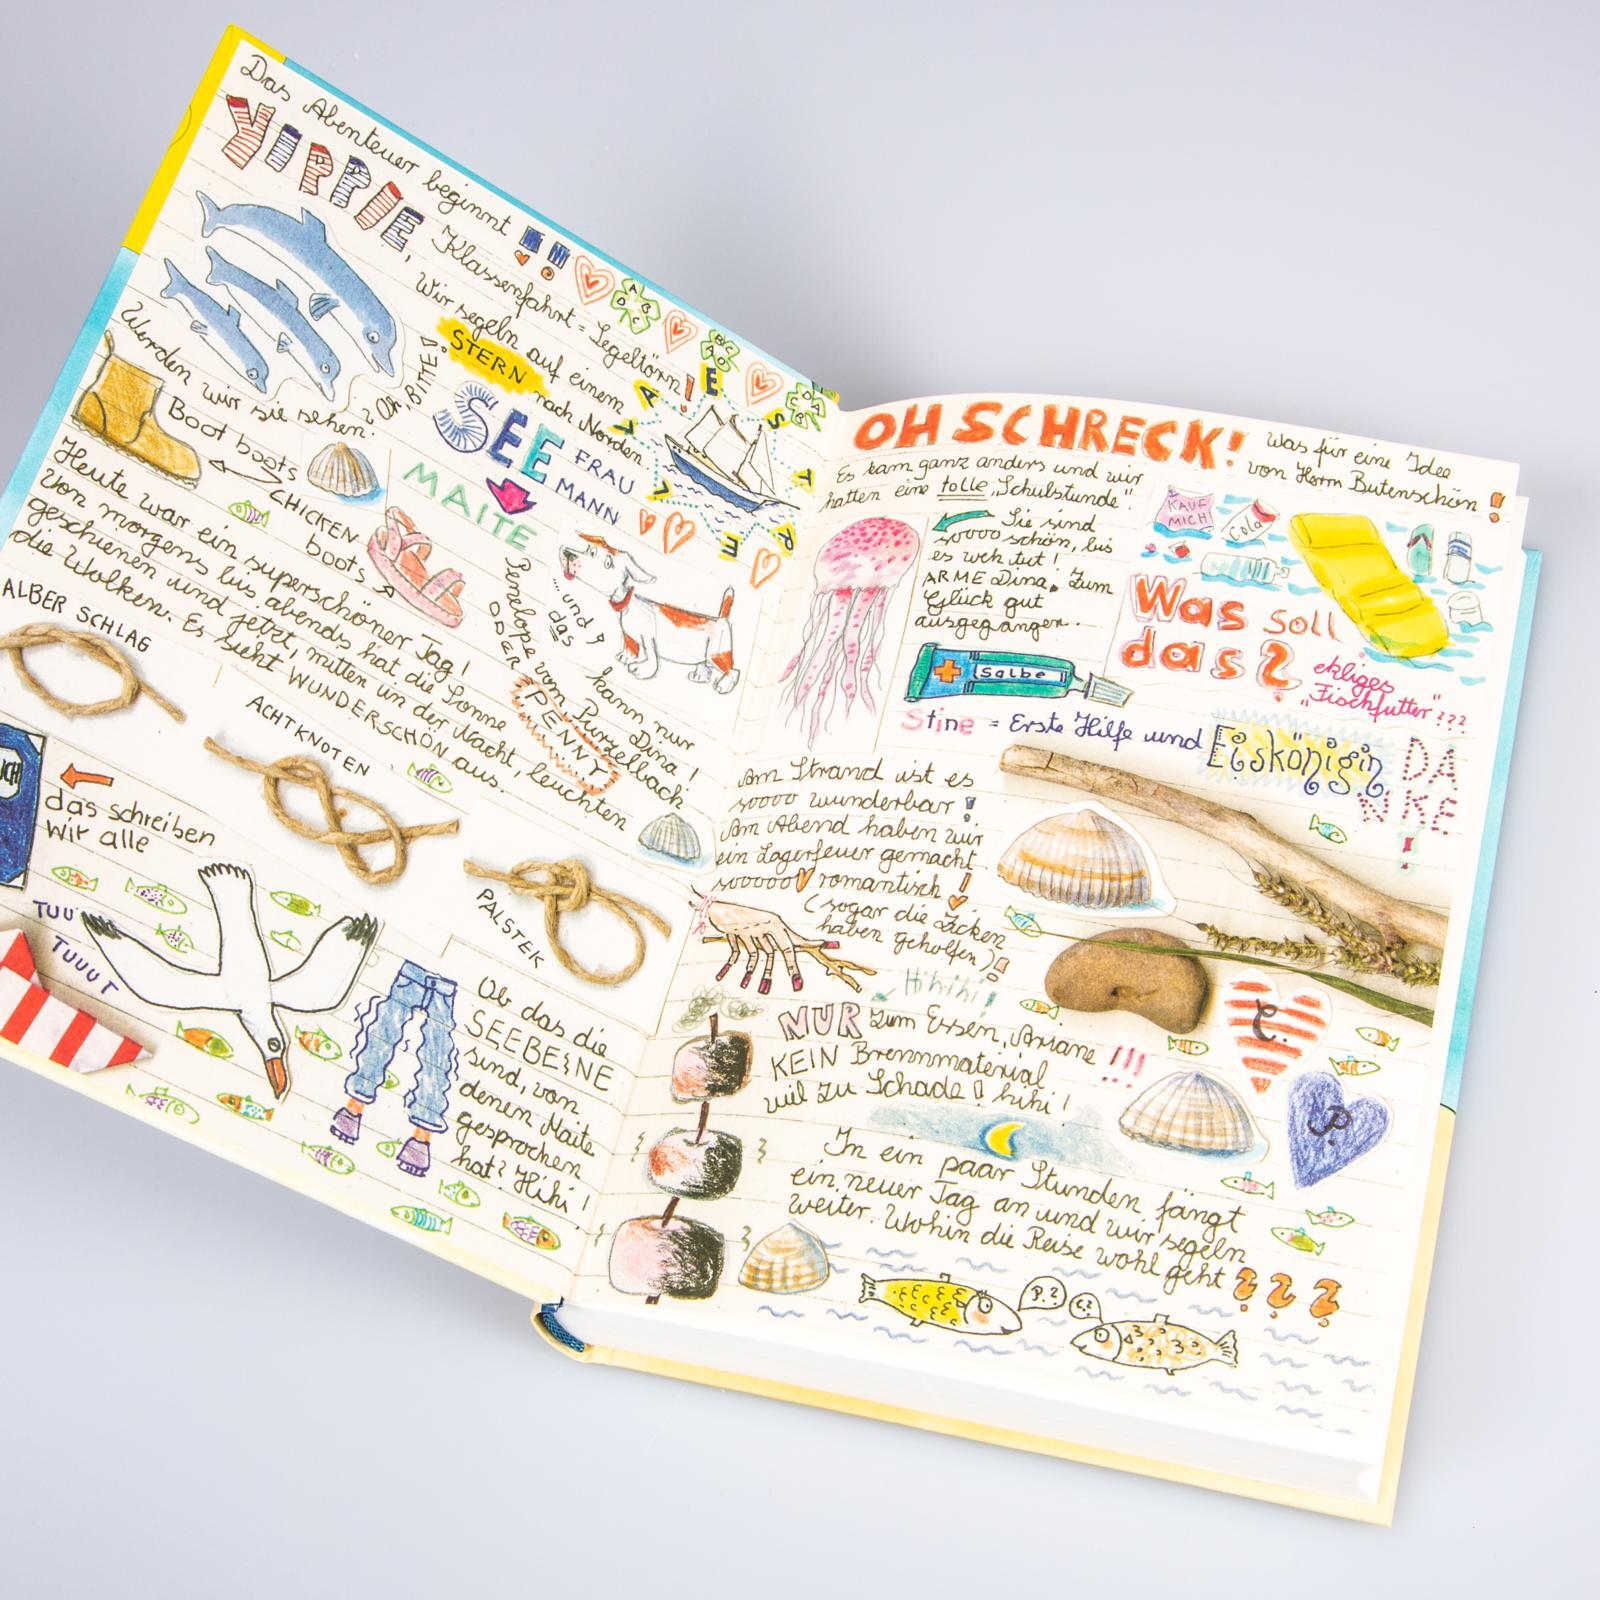 Das Abenteuer beginnt !!
YIPPIE,
Klassenfahrt = Segeltörn!
Wir segeln auf einem
STERN nach Norden
A E S T R E L A
Werden wir sie sehen? Oh, BITTE!
SEE FRAU
MANN
MAITE
Boot boots
CHICKEN
boots
Heute war ein superschöner Tag!
Von morgens bis abends hat die Sonne
geschienen und jetzt, mitten in der Nacht, leuchten
die Wolken. Es sieht WUNDERSCHÖN aus.
...und
das
kann nur
Dina!
Penelope vom Purzelbach
ODER
PENNY
ALBER SCHLAG
ACHTKNOTEN
PALSTEK
ICH
das schreiben
wir alle
TUU
TUUUT
Ob das die
SEEBEINE
sind, von
denen Maite
gesprochen
hat? Hihi!
OH SCHRECK!
Was für eine Idee
von Herrn Butenschön!
Es kam ganz anders und wir
hatten eine tolle „Schulstunde“.
Sie sind
soooo schön, bis
es weh tut!
ARME Dina. Zum
Glück gut
ausgegangen.
KAUF
MICH!
Cola
Was soll
das?
ekliges
„Fischfutter“???
Salbe
Stine = Erste Hilfe und Eiskönigin
DA
NKE
!
Am Strand ist es
soooo wunderbar!
Am Abend haben wir
ein Lagerfeuer gemacht.
sooooo romantisch!
(sogar die Zicken
haben geholfen)!
Hihihi!
NUR zum Essen, Ariane!!!
KEIN Brennmaterial
viel zu Schade! hihi!
C.
P.
In ein paar Stunden fängt
ein neuer Tag an und wir segeln
weiter. Wohin die Reise wohl geht???
P.?
C.?